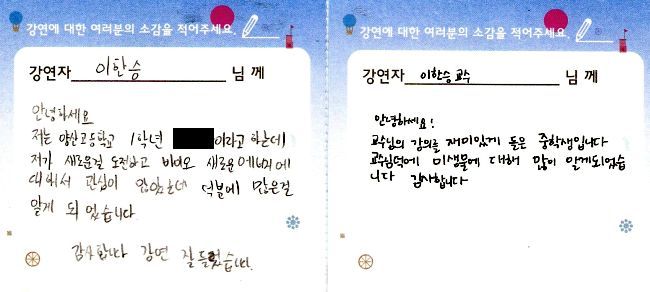 강연에 대한 여러분의 소감을 적어주세요.
강연자 이한승 님께
안녕하세요
저는 양산고등학교 1학년 이라고 하는데
저가 새로운걸 도전하고 바이오 새로운 에너지에
대해서 관심이 많았는데 덕분에 많은걸
알게 되었습니다.
감사합니다 강연 잘 들었습니다.
강연에 대한 여러분의 소감을 적어주세요.
강연자 이한승 교수 님께
안녕하세요!
교수님의 강의를 재미있게 들은 중학생입니다
교수님덕에 미생물에 대해 많이 알게되었습
니다 감사합니다